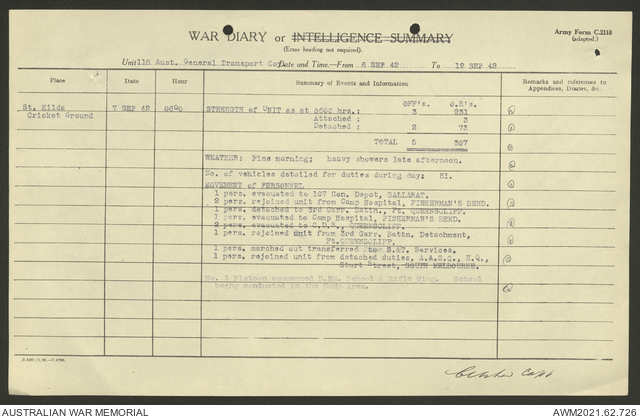 WAR DIARY or INTELLIGENCE SUMMARY
(Erase heading not required).
Army Form C.2118
(adapted.)
Unit 118 Aust. General Transport Coy. Date and Time.—From 6 SEP 42 To 12 SEP 42
Place Date Hour Summary of Events and Information Remarks and references to Appendices, Diaries, &c.
St. Kilda 7 SEP 42 0600 STRENGTH of UNIT as at 0600 hrs.: OFF's. O.R's.
Cricket Ground 3 231
Attached : 3
Detached : 2 73
TOTAL 5 307
WEATHER: Fine morning; heavy showers late afternoon.
No. of vehicles detailed for duties during day: 51.
MOVEMENT of PERSONNEL
1 pers. evacuated to 107 Con. Depot, BALLARAT.
2 pers. rejoined unit from Camp Hospital, FISHERMAN'S BEND.
1 pers. detached to 3rd Garr. Battn., Ft. QUEENSCLIFF.
1 pers. evacuated to Camp Hospital, FISHERMAN'S BEND.
2 pers. evacuated to C.D.S., QUEENSCLIFF.
1 pers. rejoined unit from 3rd Garr. Battn. Detachment,
Ft.QUEENSCLIFF.
1 pers. marched out transferred to S.&T. Services.
1 pers. rejoined unit from detached duties, A.A.S.C., H.Q.,
Sturt Street, SOUTH MELBOURNE.
No. 1 Platoon commenced School & Rifle Wing. School
being conducted in the Camp Area.
Capt
AUSTRALIAN WAR MEMORIAL AWM2021.62.726